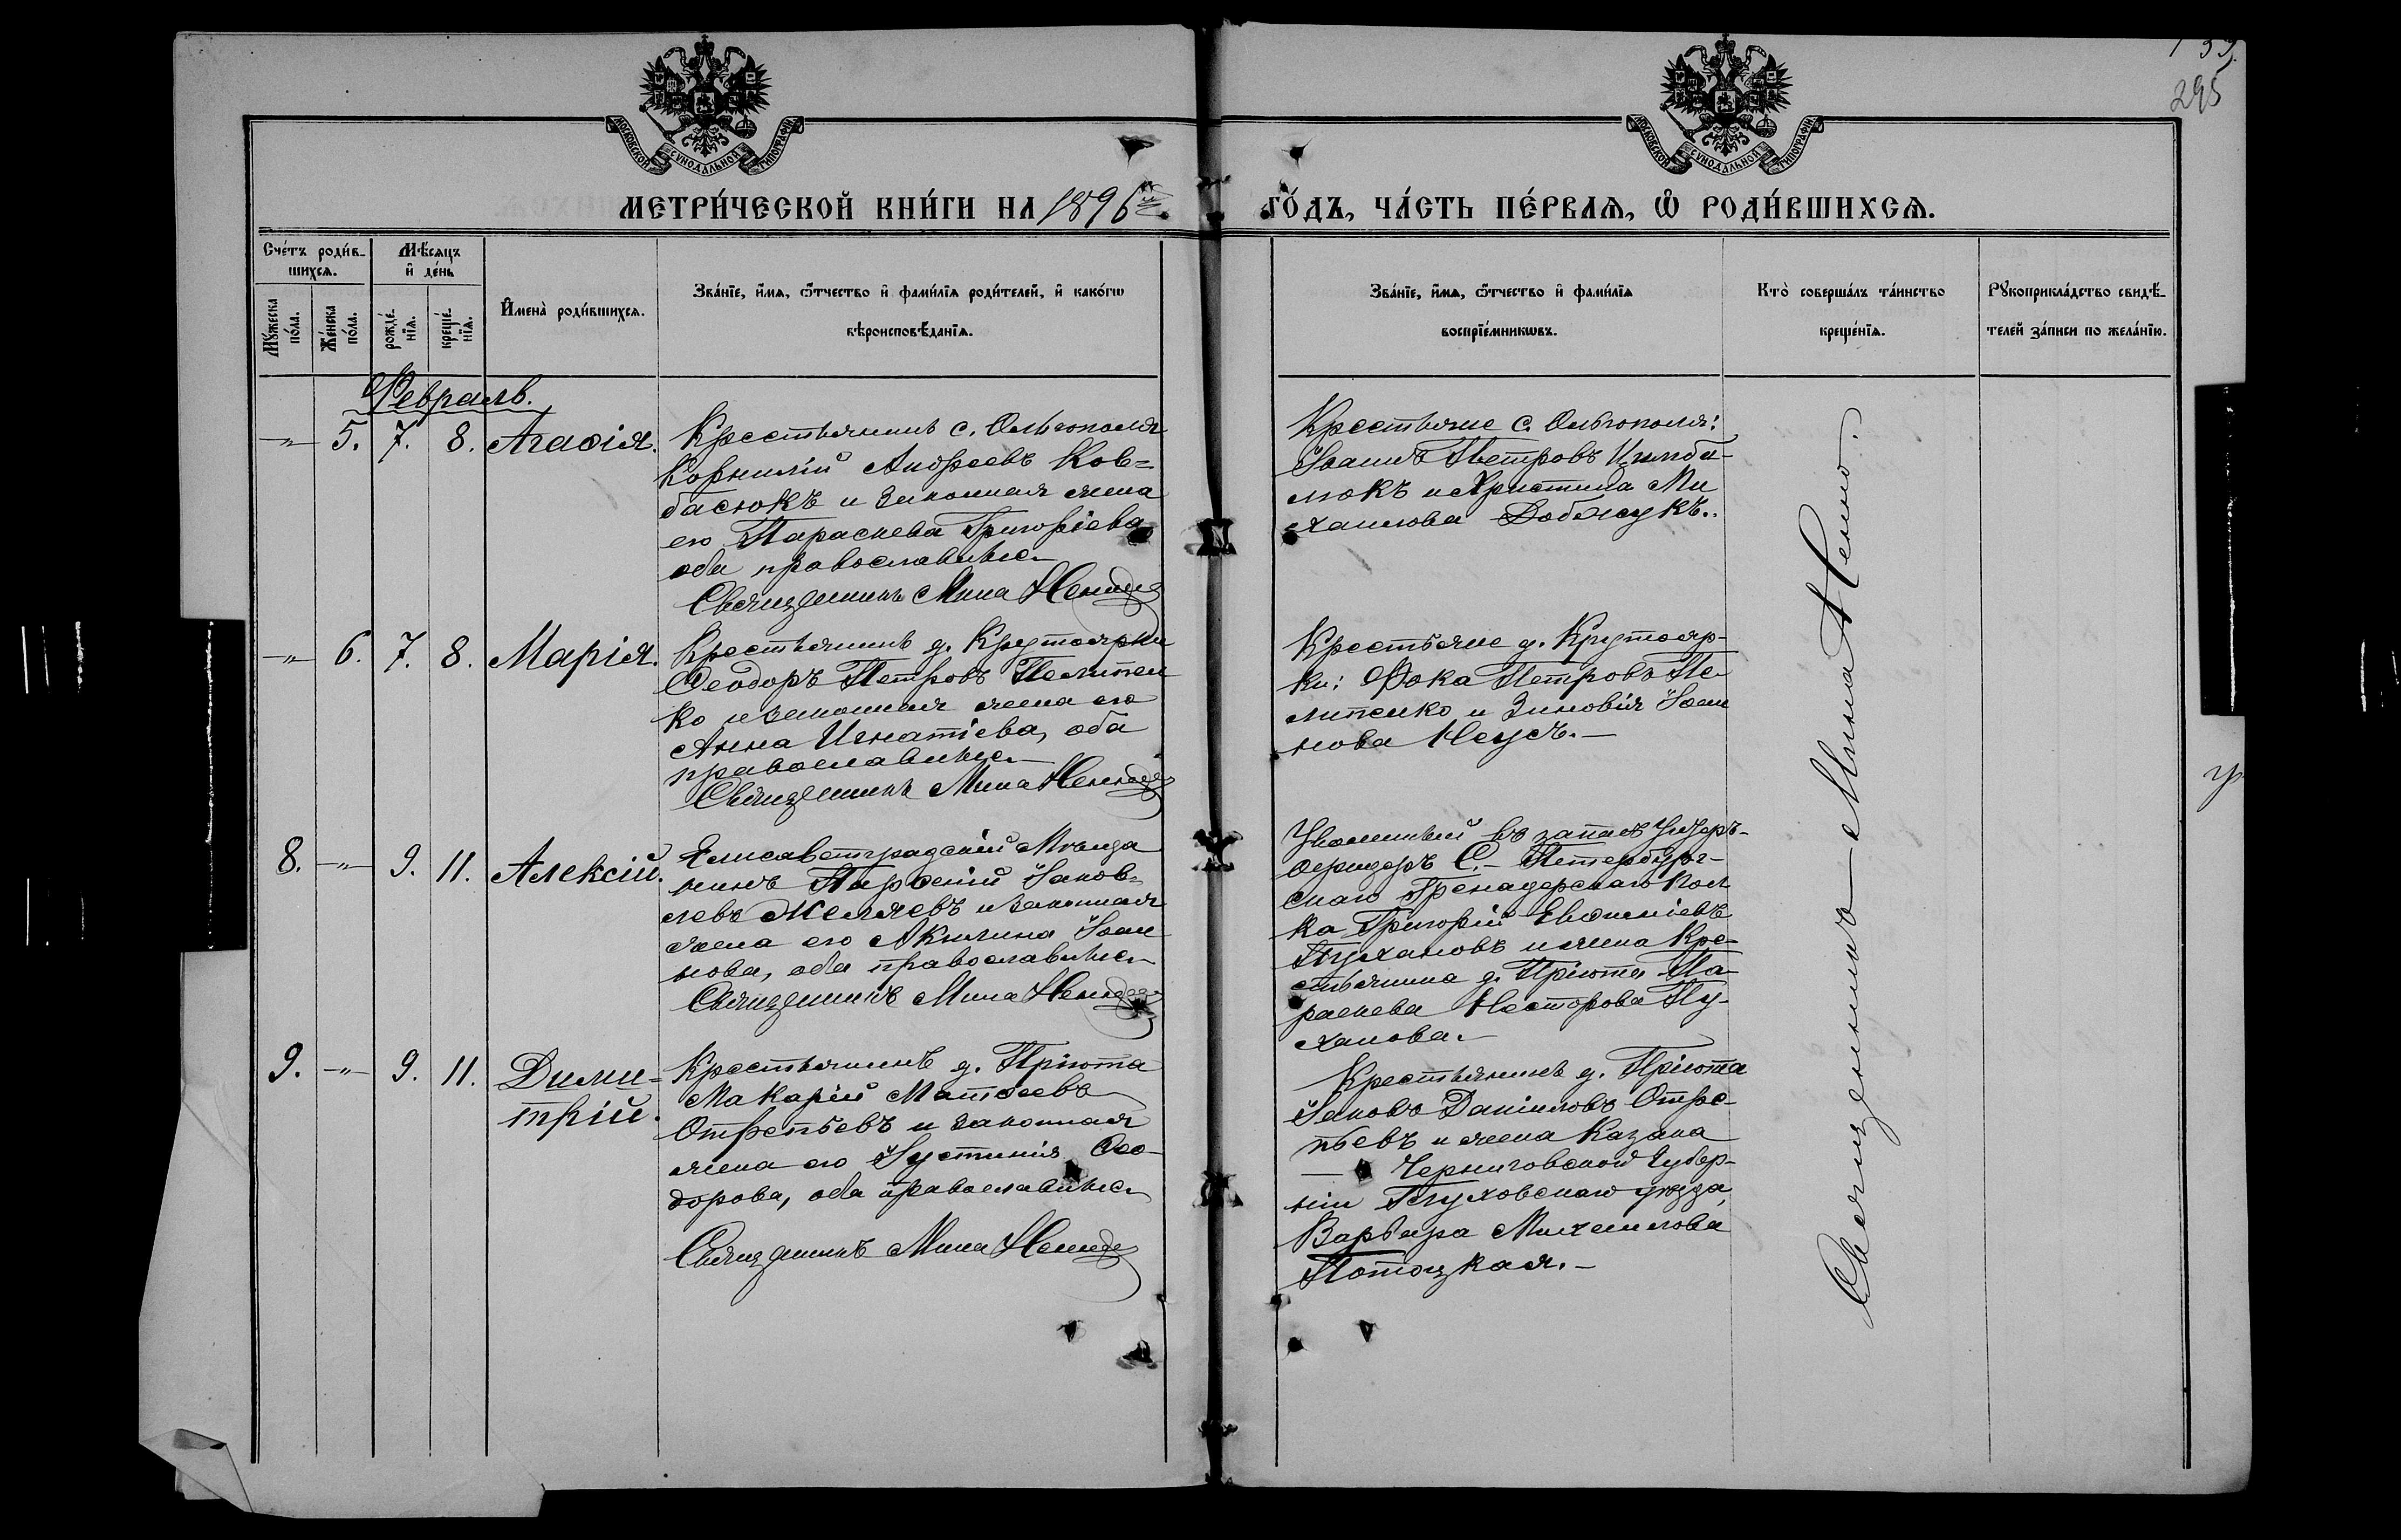 МОСКОВСКОЙ СУНОДАЛЬНОЙ ТИПОГРАФІИ
МОСКОВСКОЙ СУНОДАЛЬНОЙ ТИПОГРАФІИ
295
МЕТРИ́ЧЕСКОЙ КНИ́ГИ НА 1896
ГО́ДЪ, ЧА́СТЬ ПЕ́РВАѦ, Ѡ РОДИ́ВШИХСѦ.
Сче́тъ роди́в-
шихсѧ.
Мꙋ́жеска по́ла.
Же́нска по́ла.
Мѣ́сѧцъ
и҆ де́нь
рожде́-нїѧ.
креще́-нїѧ.
И҆мена̀ роди́вшихсѧ.
Зва́нїе, и҆́мѧ, ѻ҆́тчество и҆ фами́лїѧ роди́телей, и҆ како́гѡ
вѣроисповѣ́данїѧ.
Зва́нїе, и҆́мѧ, ѻ҆́тчество и҆ фами́лїѧ
воспрїе́мникѡвъ.
Кто̀ соверша́лъ та́инство
креще́нїѧ.
Рꙋкоприкла́дство свидѣ́-
телей за́писи по жела́нїю.
Февраль.
-„- 5. 7. 8. Агаѳія.
Крестьянинъ с. Ольгополя
Корнилій Андреевъ Ков=
басюкъ и законная жена
его Параскева Григоріева
оба православные
Священникъ Мина
Крестьяне с. Ольгополя:
Іоаннъ Петровъ Цимба-
люкъ и Христина Ми
хаилова Добжукъ..
-„- 6. 7. 8. Марія.
Крестьянинъ д. Крутоярки
Ѳеодоръ Петровъ Пелипен
ко и законная жена его
Анна Игнатіева, оба
православные
Священникъ Мина
Крестьяне д. Крутояр-
ки: Фока Петровъ Пе-
липенко и Зиновія Іоан
нова Неусъ.-
8. -„- 9. 11. Алексій.
Елисаветградскій Мѣща
нинъ Парѳеній Іаков=
левъ Желяевъ и законная
жена его Акилина Іоан
нова, оба православные
Священникъ Мина
Уволенный въ запасъ Унтеръ-
офицеръ С.- Петербург-
скаго Гренадерскаго Пол
ка Григорій Евѳиміевъ
и жена Кре-
стьянина д. Пріюта Па-
раскева Несторова
ханова.-
9. -„- 9. 11. Дими=
трій.
Крестьянинъ д. Пріюта
Макарій Матѳеевъ
Отрепьевъ и законная
жена его Іустинія Ѳео-
дорова, оба православные
Священникъ Мина
Крестьянинъ д. Пріюта
Іаковъ Даніиловъ Отре-
пьевъ и жена Казака
Черниговской Губер-
ніи Глуховскаго уѣзда,
Варвара Михаилова
Потоцкая.-
Священникъ Мина